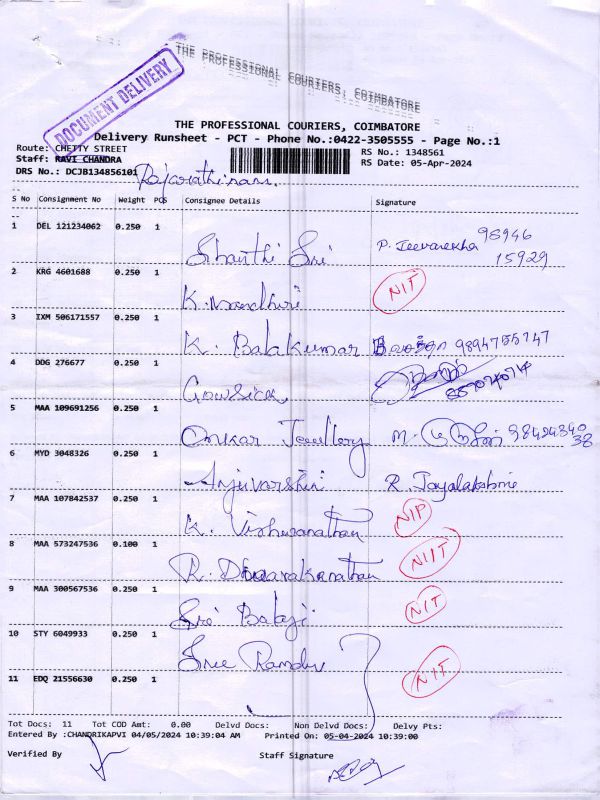 THE PROFESSIONAL COURIERS, COIMBATORE
DOCUMENT DELIVERY
THE PROFESSIONAL COURIERS, COIMBATORE
Delivery Runsheet - PCT - Phone No.:0422-3505555 - Page No.:1
Route: CHETTY STREET RS No.: 1348561
Staff: RAVI CHANDRA RS Date: 05-Apr-2024
DRS No.: DCJB134856101 Rajarathinam.
S No Consignment No Weight PCS Consignee Details Signature
1 DEL 121234062 0.250 1 Shanthi Sri P. Jeevarekha 98946 15929
2 KRG 4601688 0.250 1 K. Nandhini NIT
3 IXM 506171557 0.250 1 K. Balakumar 9894755747
4 DDG 276677 0.250 1 Gowsick
5 MAA 109691256 0.250 1 Omkar Jewellery M. 98424340 38
6 MYD 3048326 0.250 1 Anjuvarshini R. Jayalakshmi
7 MAA 107842537 0.250 1 K. Vishwanathan NIP
8 MAA 573247536 0.100 1 R. Dwarakanathan NIIT
9 MAA 300567536 0.250 1 Sri Balaji NIT
10 STY 6049933 0.250 1 Sree Nandhi
11 EDQ 21556630 0.250 1 NIT
Tot Docs: 11 Tot COD Amt: 0.00 Delvd Docs: Non Delvd Docs: Delvy Pts:
Entered By :CHANDRIKAPVI 04/05/2024 10:39:04 AM Printed On: 05-04-2024 10:39:00
Verified By Staff Signature